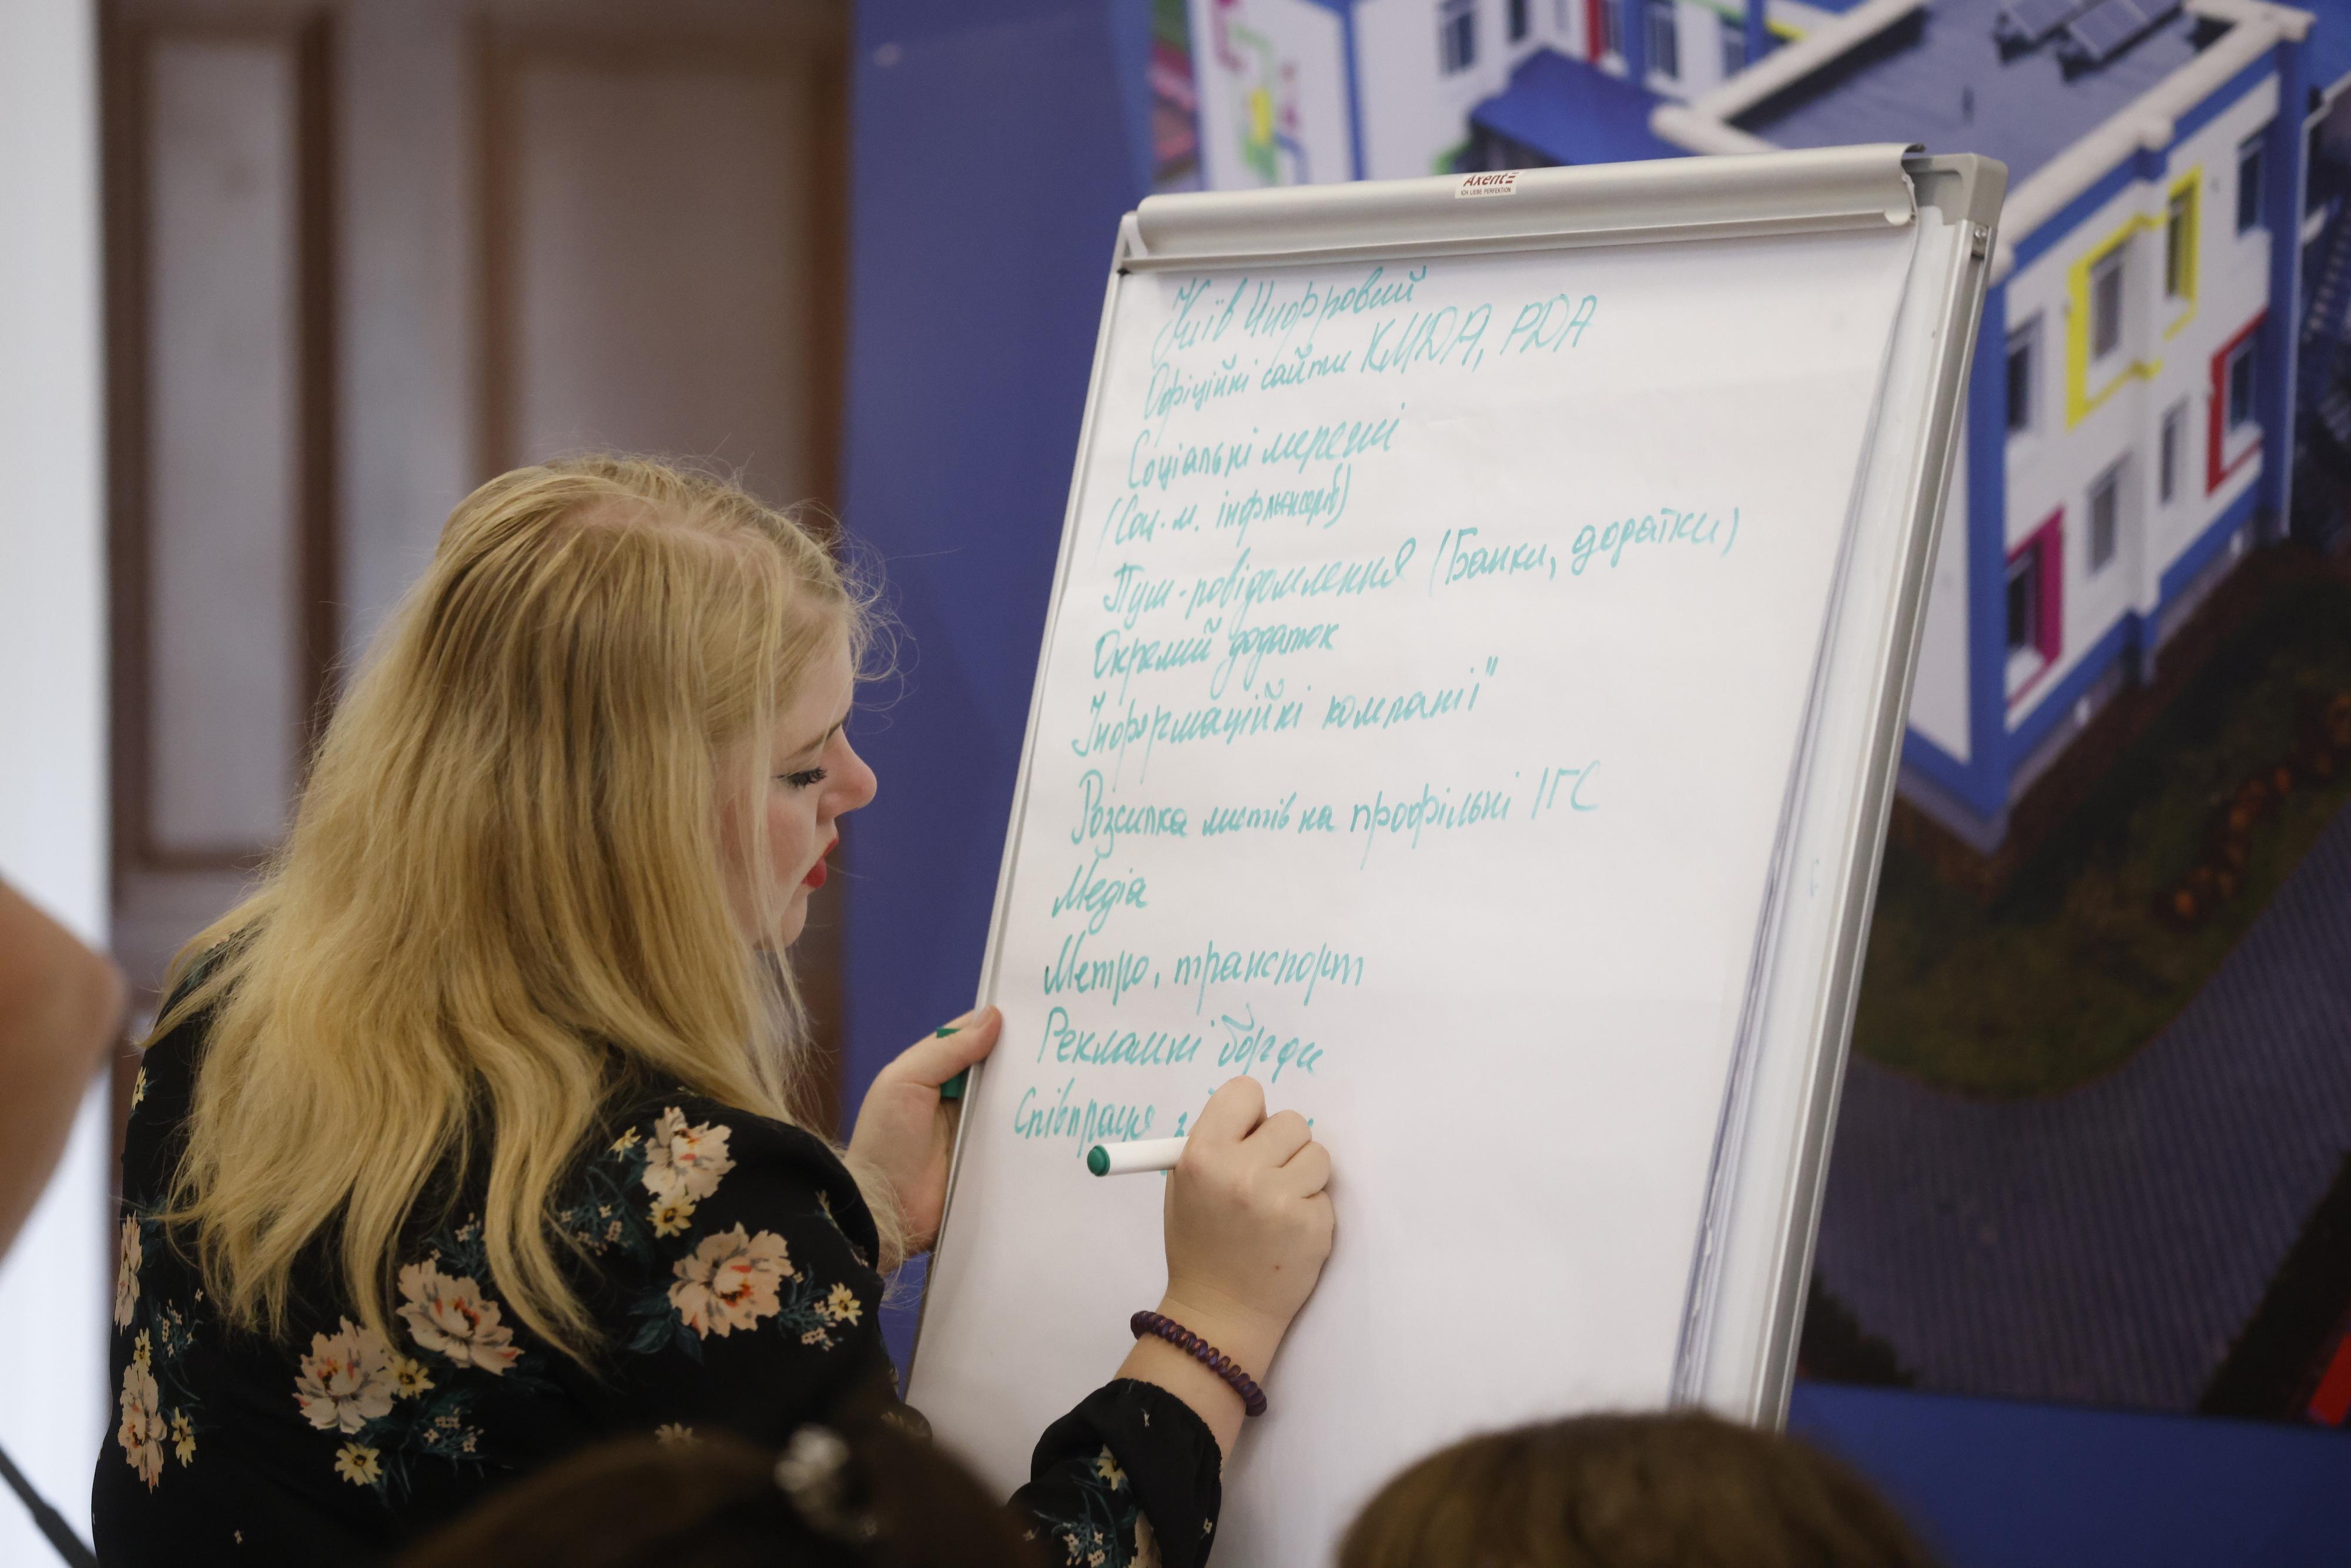 Axent
ICH LIEBE PERFEKTION
Київ Цифровий
Офіційні сайти КМДА, РДА
Соціальні мережі
(Соц. м. інфлюенсерів)
Пуш-повідомлення (Банки, додатки)
Окремий додаток
Інформаційні компанії"
Розсилка листів на профільні ІГС
Медіа
Метро, транспорт
Рекламні борди
Співпраця з